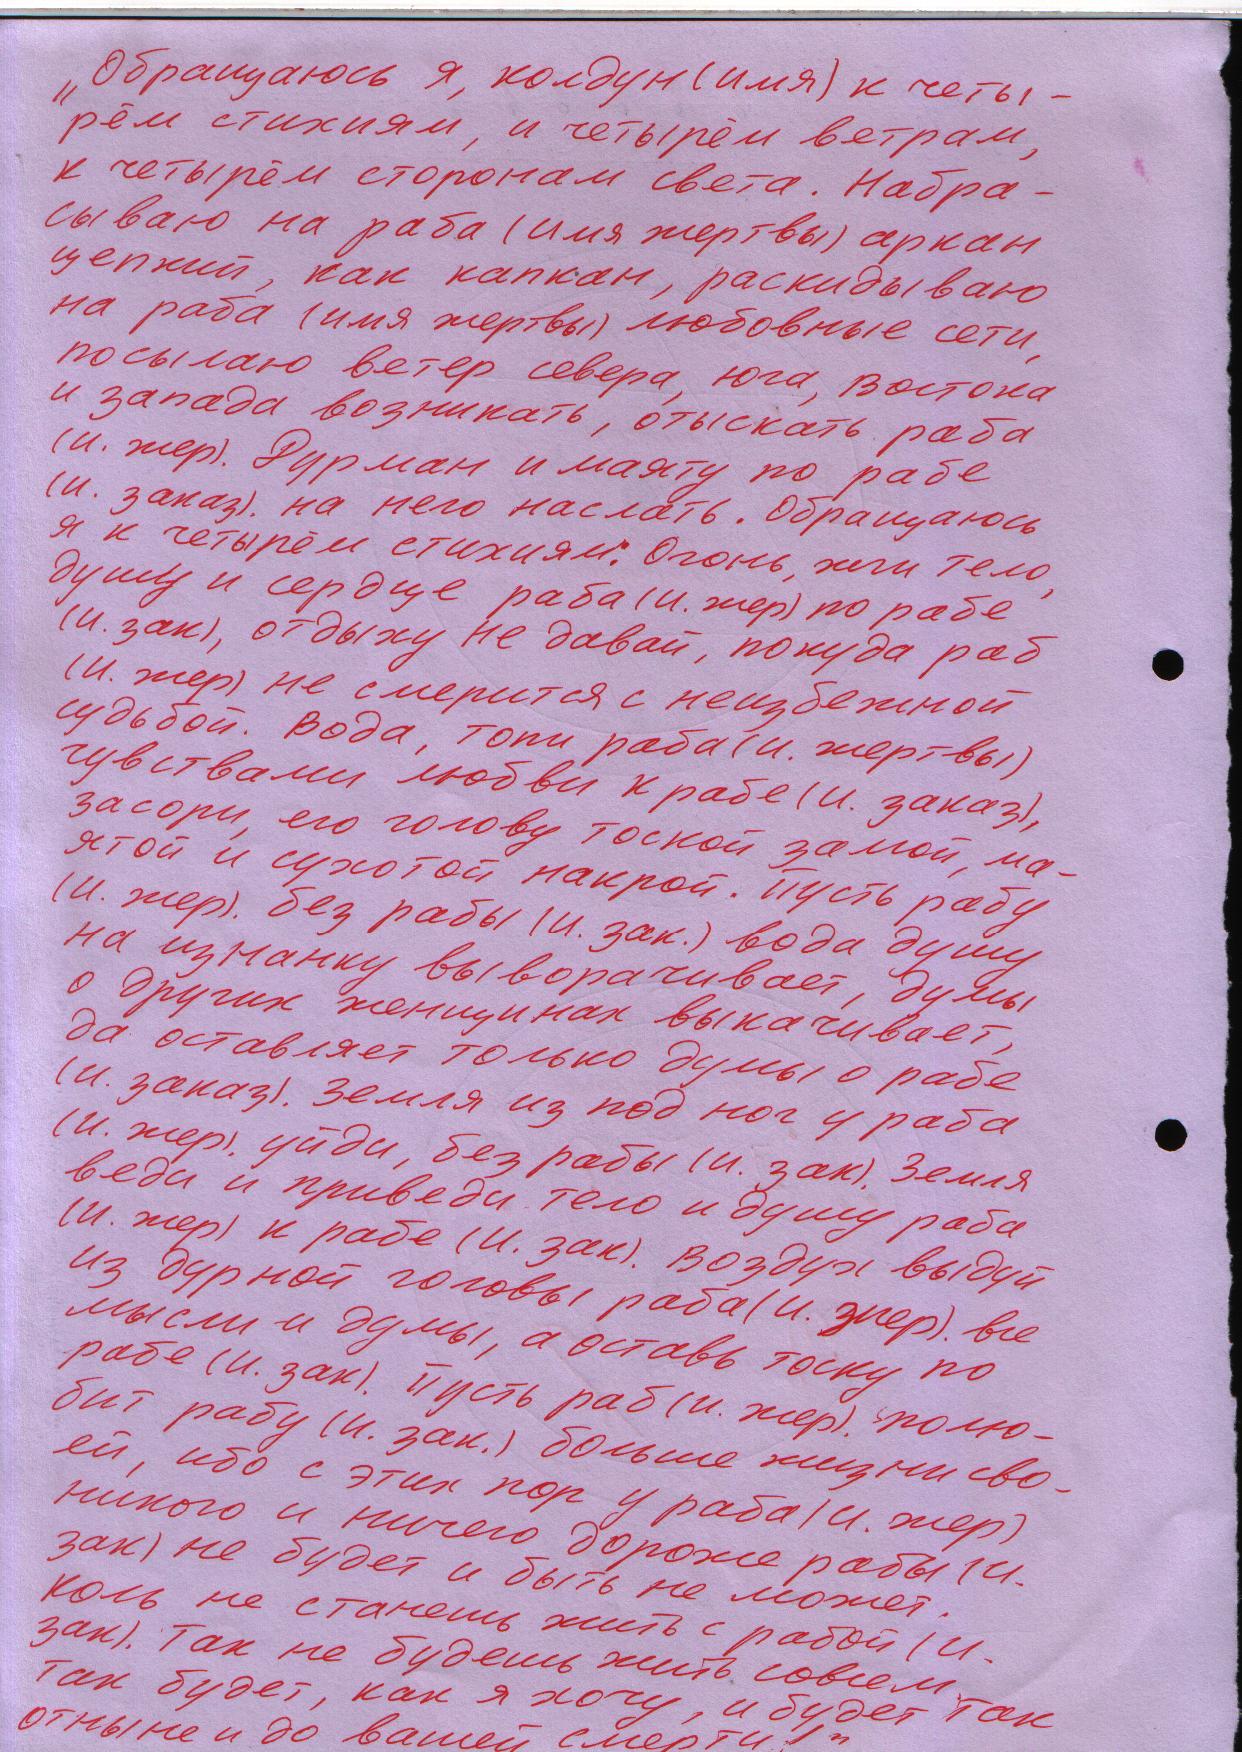 „Обращаюсь я, колдун (имя) к четы-
рём стихиям, и четырём ветрам,
к четырём сторонам света. Набра-
сываю на раба (имя жертвы) аркан
цепкий, как капкан, раскидываю
на раба (имя жертвы) любовные сети,
посылаю ветер севера, юга, востока
и запада возникать, отыскать раба
(и. жер). Дурман и маяту по рабе
(и. заказ). на него наслать. Обращаюсь
я к четырём стихиям: Огонь, жги тело,
душу и сердце раба (и. жер) по рабе
(и. зак), отдыху не давай, покуда раб
(и. жер) не смерится с неизбежной
судьбой. Вода, топи раба (и. жертвы)
чувствами любви к рабе (и. заказ),
засори, его голову тоской замой, ма-
ятой и сухотой накрой. Пусть рабу
(и. жер). без рабы (и. зак.) вода душу
на изнанку выворачивает, думы
о других женщинах выкачивает,
да оставляет только думы о рабе
(и. заказ). Земля из под ног у раба
(и. жер). уйди, без рабы (и. зак). Земля
веди и приведи тело и душу раба
(и. жер) к рабе (и. зак). Воздух выдуй
из дурной головы раба (и. жер). все
мысли и думы, а оставь тоску по
рабе (и. зак). Пусть раб (и. жер). полю-
бит рабу (и. зак.) больше жизни сво-
ей, ибо с этих пор у раба (и. жер)
никого и ничего дороже рабы (и.
зак) не будет и быть не может.
Коль не станешь жить с рабой (и.
зак). Так не будешь жить совсем.
Так будет, как я хочу, и будет так
отныне и до вашей смерти!"